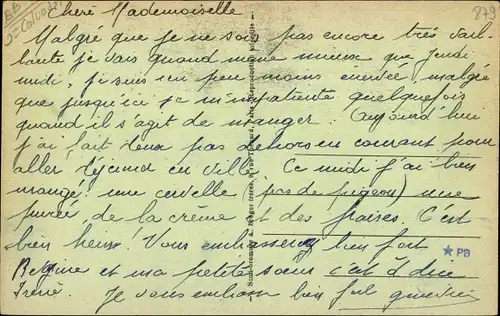 Cheré Mademoiselle
Malgré que je ne sois pas encore très vail-
lante je vais quand même mieux que jeudi
midi, je suis un peu moins énervée, malgré
que jusqu'ici je m'impatiente quelquefois
quand il s'agit de manger. Aujourd'hui
j'ai fait deux pas dehors en courant pour
aller déjeuner en ville. Ce midi j'ai bien
mangé: une cervelle (pas de pigeon) une
purée, de la crème et des fraises. C'est
bien heureux! Vous embrasserez bien fort
Régine et ma petite sœur c'est à dire
Irène. Je vous embrasse bien fort
879
★ PB